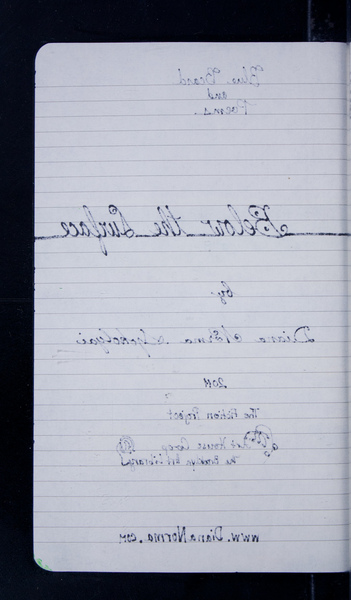 Blue Beard
and
Poems.
Below the Surface
by
Diana Norma Szokolyai
2011
The Fiction Project
Art House Co-op
The Brooklyn Art Library
www.DianaNorma.com